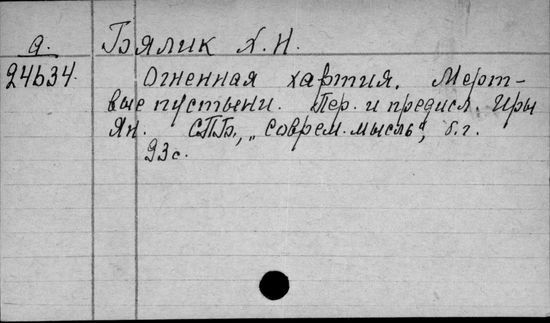 д. Бялик Х.Н.
24634. Огненная хартия. Мерт-
вые пустыни. Пер. и предисл. Иры
Ян. СПБ, „Соврем. мысль", б.г.
93с.